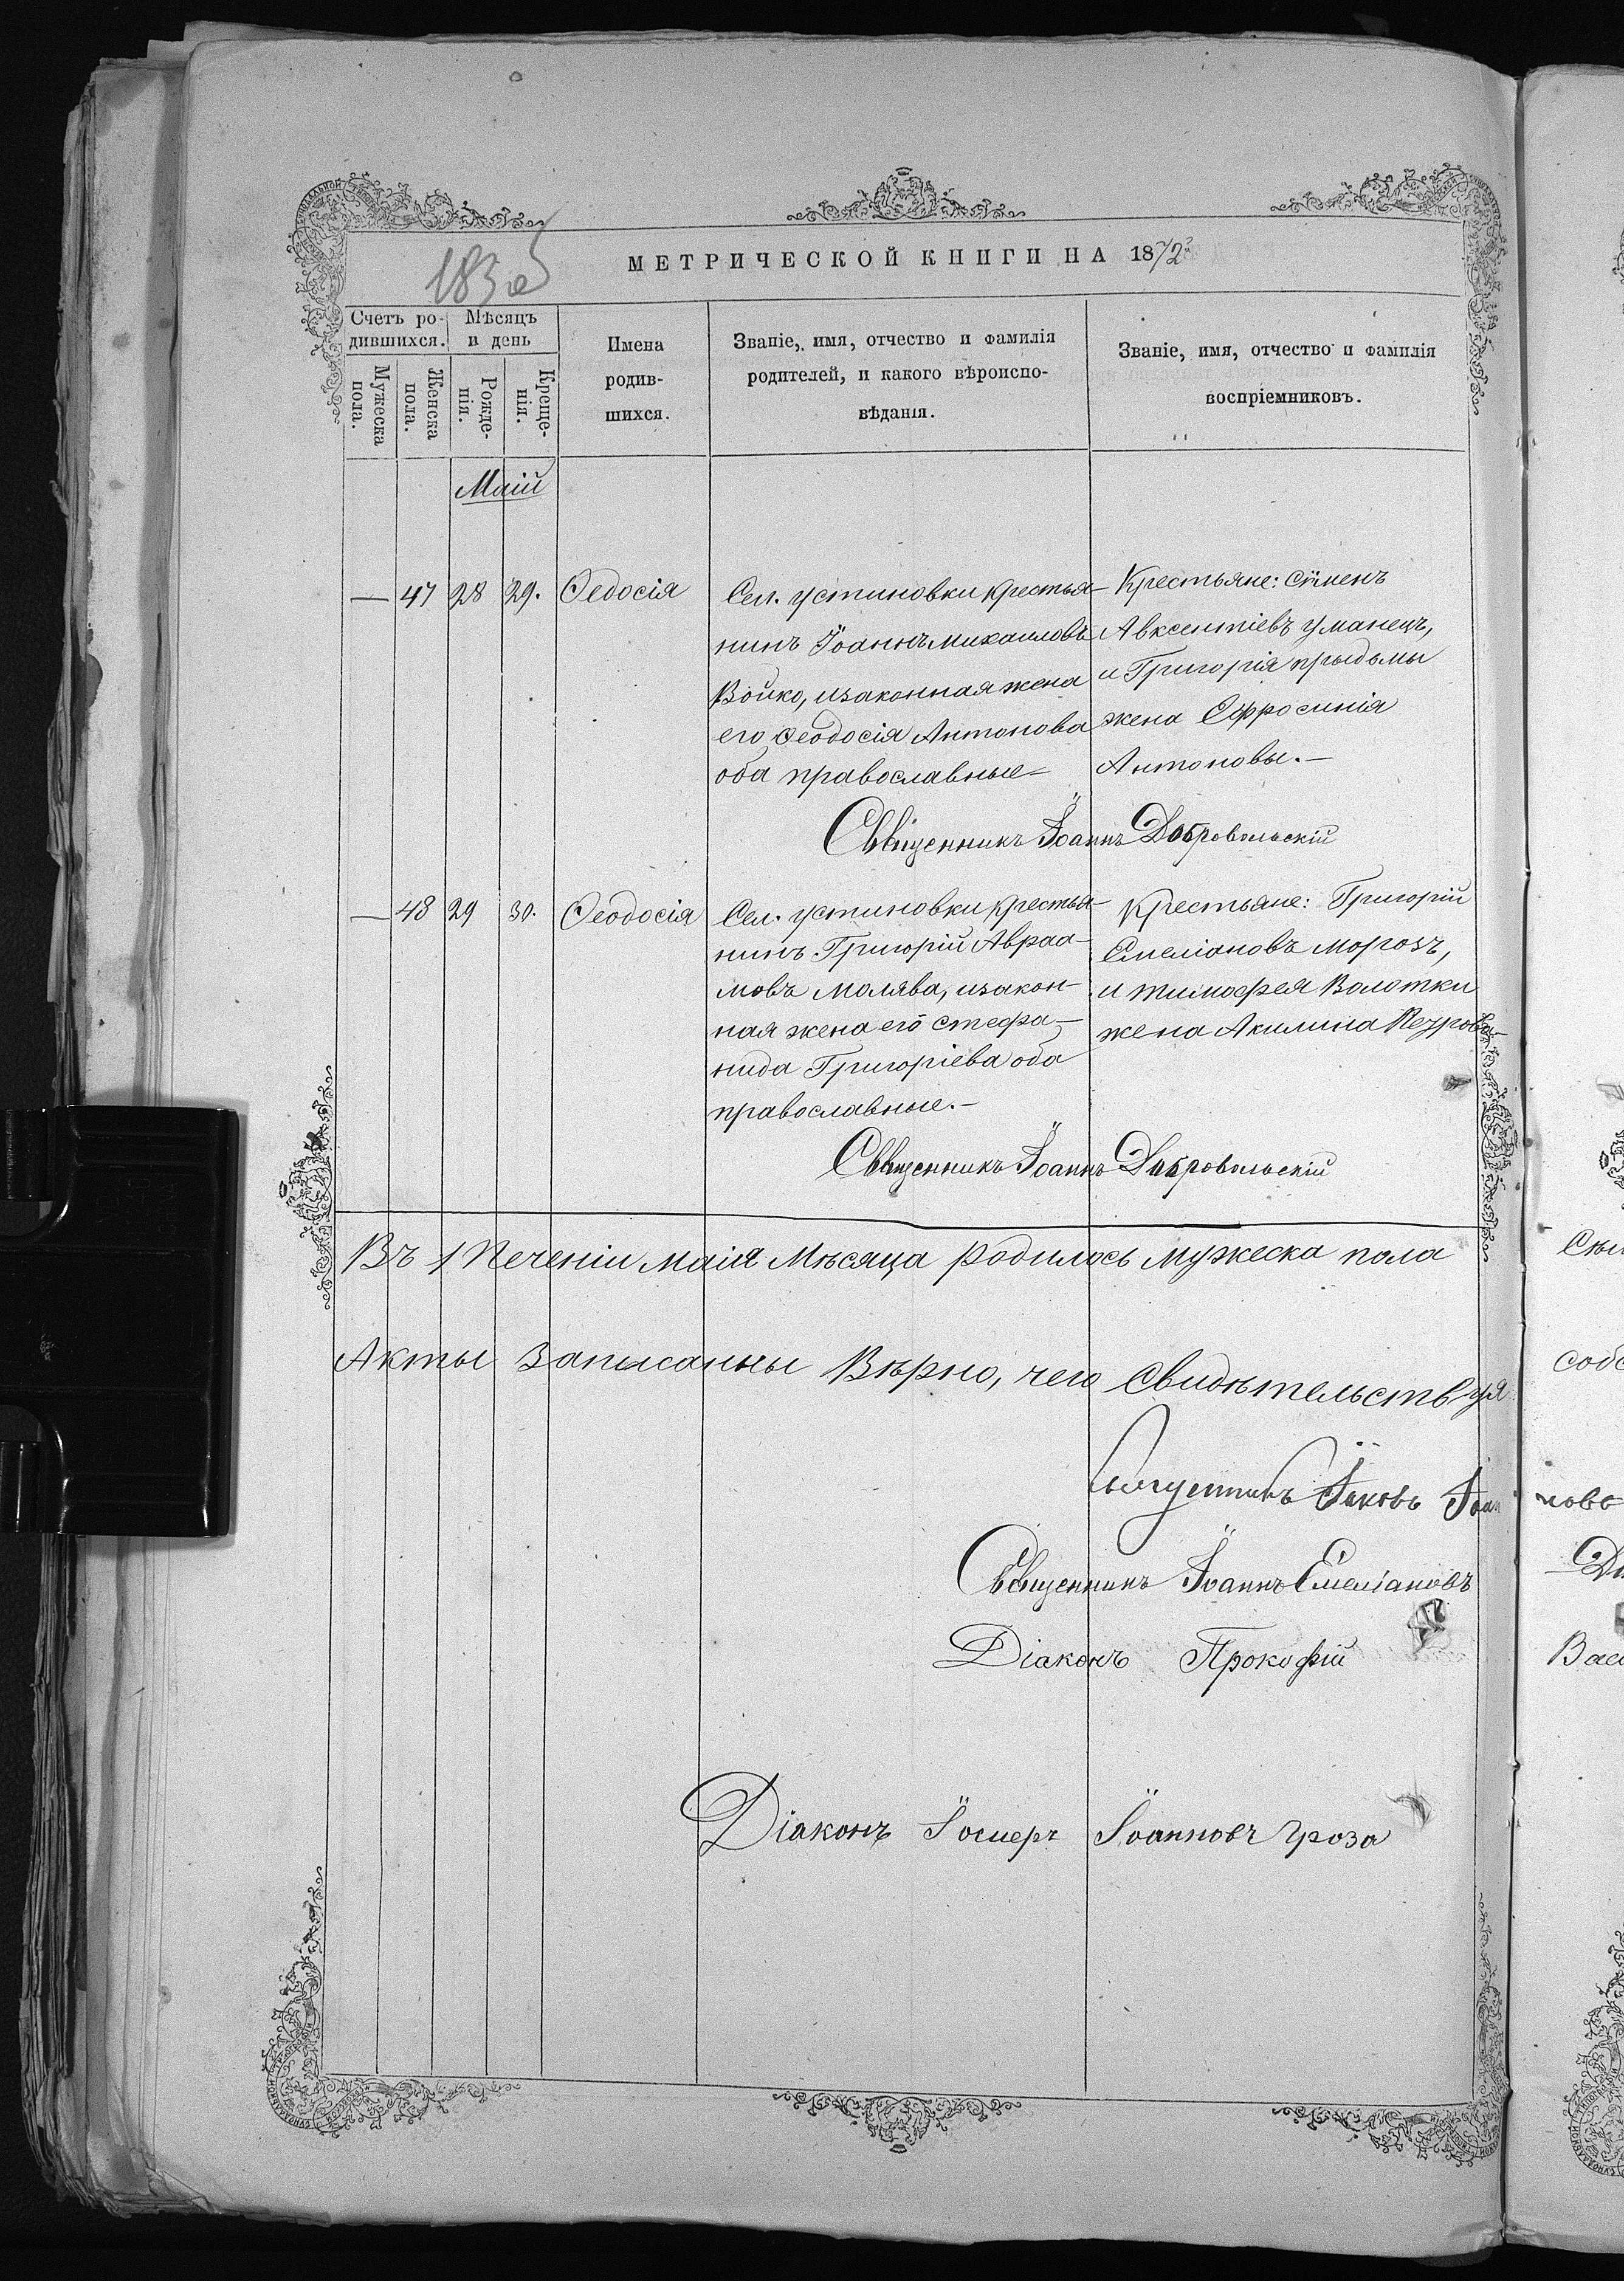 183 об
МЕТРИЧЕСКОЙ КНИГИ НА 1872
Счетъ ро-
дившихся.
Мѣсяцъ
и день
Мужеска
пола.
Женска
пола.
Рожде-
нія.
Креще-
нія.
Имена
родив-
шихся.
Званіе, имя, отчество и фамилія
родителей, и какого вѣроиспо-
вѣданія.
Званіе, имя, отчество и фамилія
воспріемниковъ.
Маій
— 47 28 29. Ѳедосія
Сел. устиновки крестья-
нинъ Іоаннъ михаиловъ
Бойко, изаконная жена
его Ѳеодосія Антонова
оба православные
Крестьяне: Сименъ
Авксентіевъ уманецъ,
и Григорія прыдьмы
жена Ефросинія
Антоновы.—
Священникъ Іоаннъ Добровольскій
— 48 29 30. Ѳеодосія
Сел. устиновки крестья-
нинъ Григорій Авраа-
мовъ молява, изакон-
ная жена его стефа-
нида Григоріева оба
православные.—
Крестьяне: Григорій
Емеліановъ морозъ,
и тимофея Болотки
жена Акилина Петрова
Священникъ Іоаннъ Добровольскій
Въ теченіи маія мѣсяца родилось мужеска пола
Акты записанны Вѣрно, чего свидѣтельствуя
Іаковъ Іоан
Священникъ Іоаннъ Емеліановъ
Діаконъ Прокофій
Діаконъ Іосифъ Іоанновъ Гроза